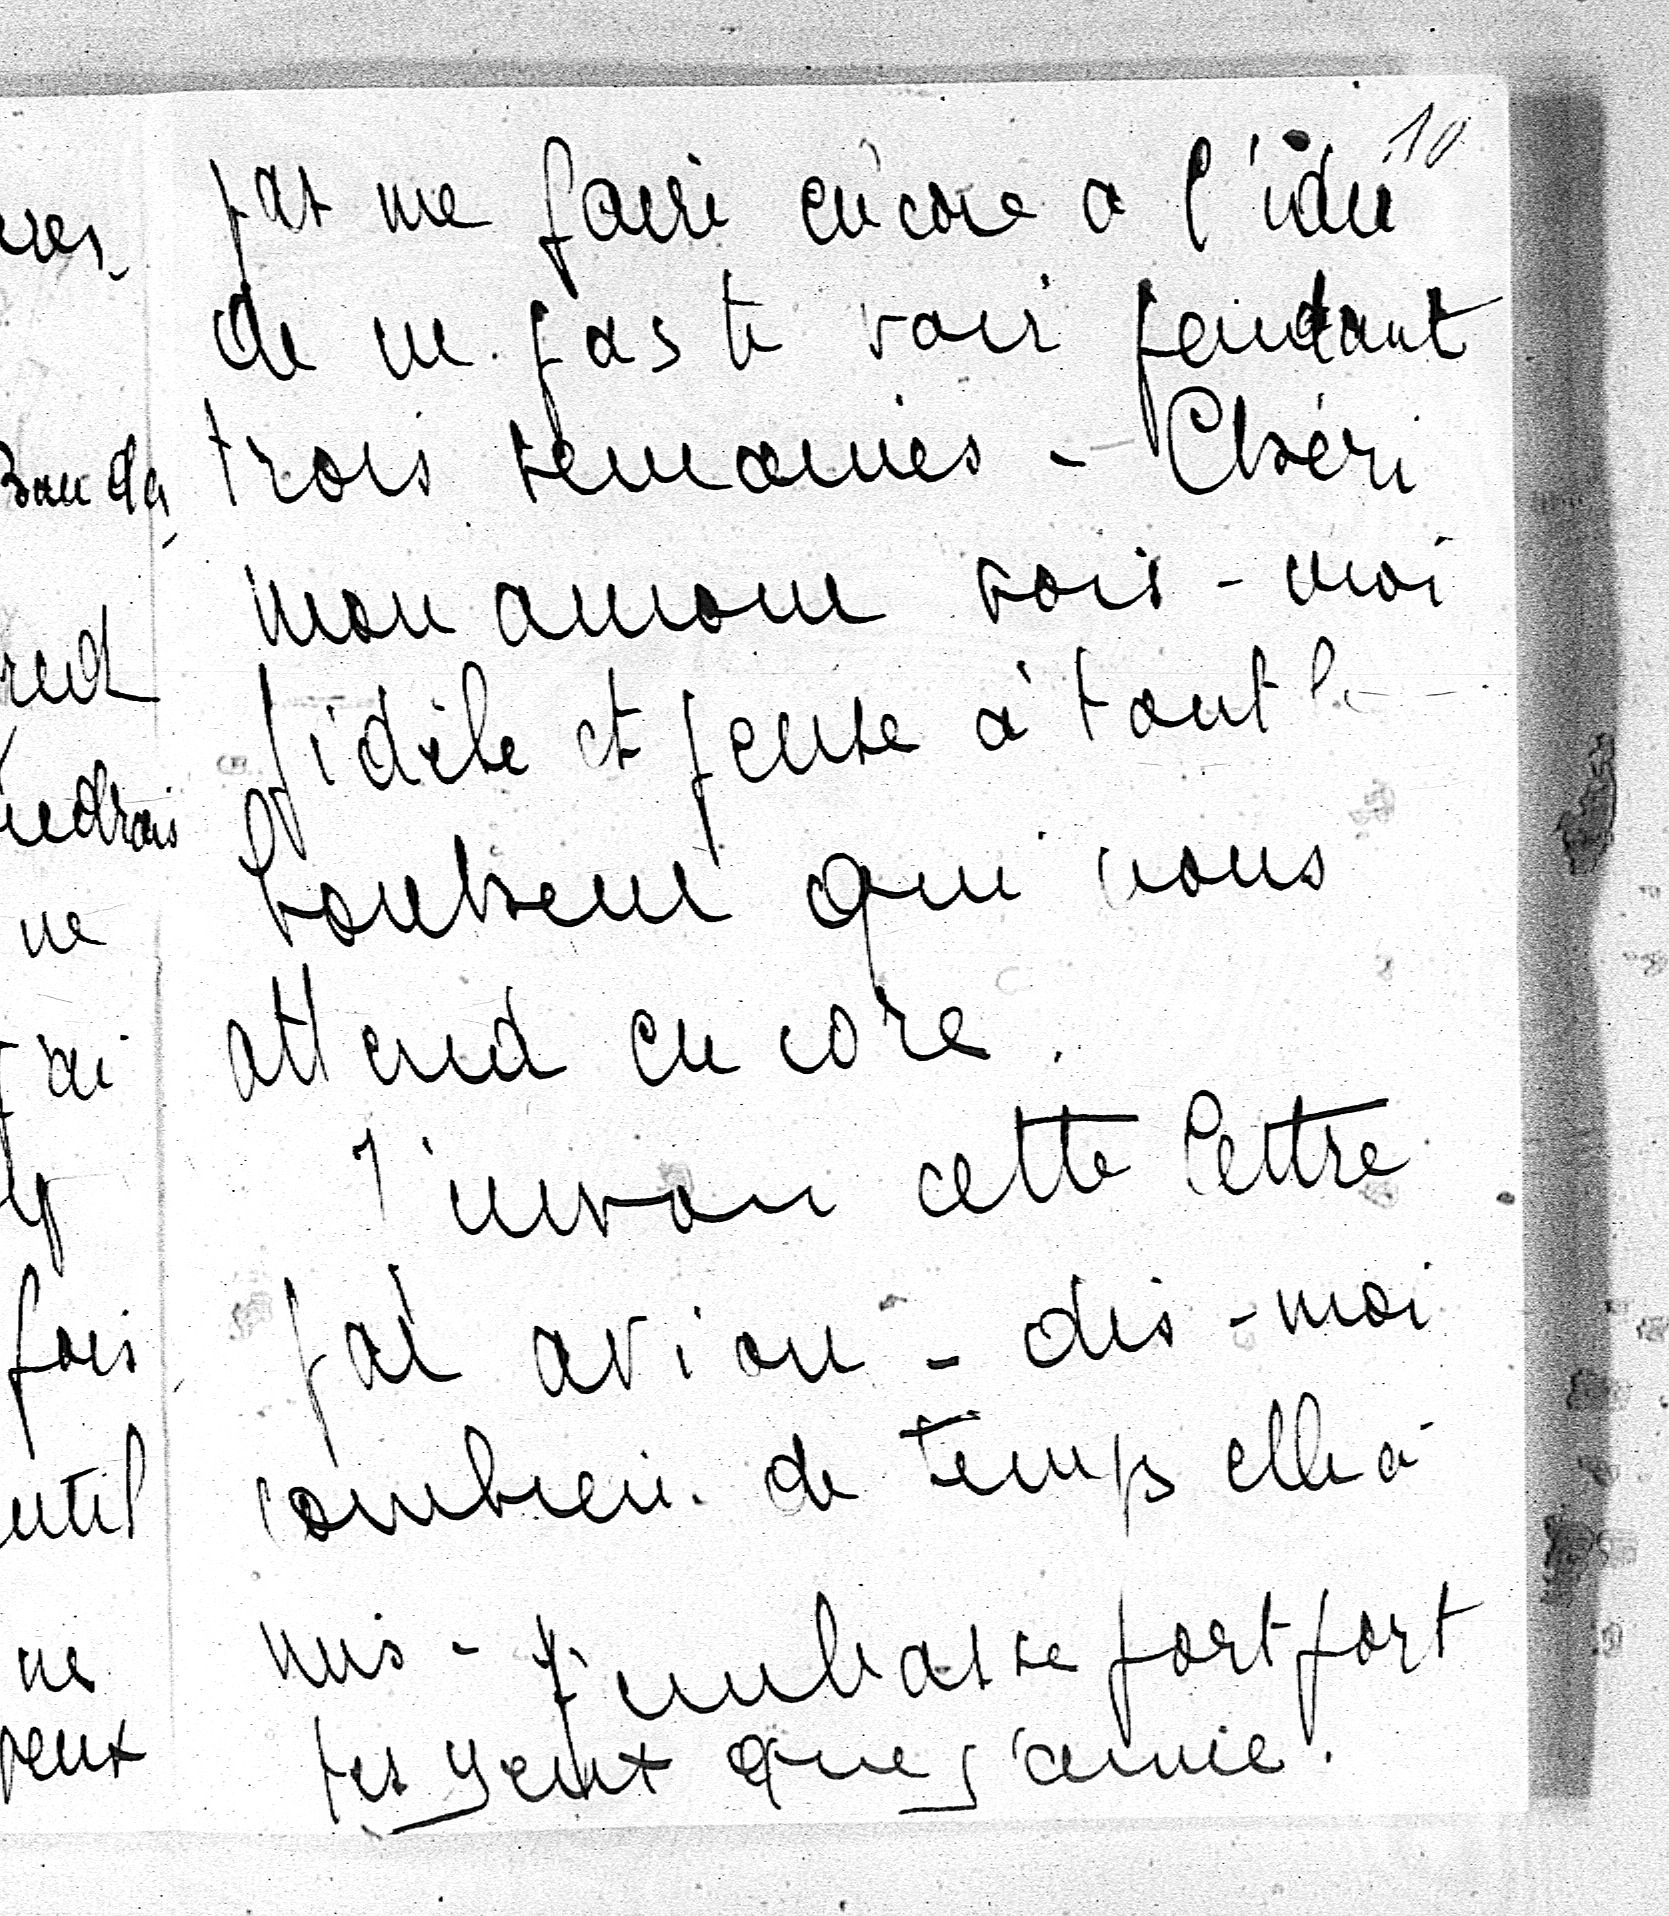 10
pas me faire encore a l'idée
de ne pas te voir pendant
trois semaines - Chéri
mon amour sois-moi
fidèle et pense à tout le
bonheur qui nous
attend encore.
J'envoie cette lettre
par avion - dis-moi
combien de temps elle a
mis - J'embrasse fort fort
tes yeux que j'aime.
ne
fois
ne